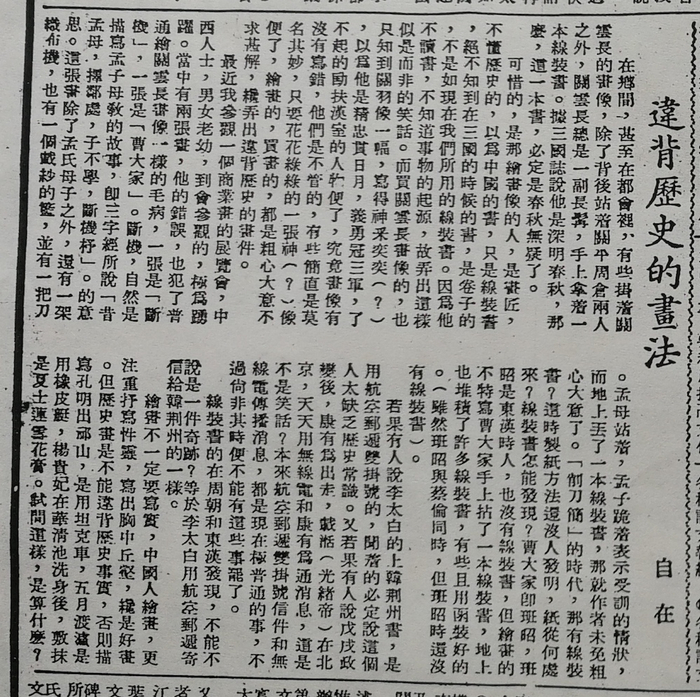 違背歷史的畫法
自在
在鄉間,甚至在都會裡,有些掛着關
雲長的畫像,除了背後站着關平周倉兩人
之外,關雲長總是一副長髯,手上拿着一
本線裝書。據三國誌說他是深明春秋,那
麼,這一本書,必定是春秋無疑了。
可惜的,是那繪畫像的人,是畫匠,
不懂歷史的,以為中國的書,只是線裝書
,絕不知到在三國的時候的書,是卷子的
,不是如現在我們所用的線裝書。因為他
不讀書,不知道事物的起源,故弄出這樣
似是而非的笑話。而買關雲長畫像的,也
只知到關羽像一幅,寫得神釆奕奕(?)
,以為他是精忠貫日月,義勇冠三軍,了
不起的勛扶漢室的人物便了,究竟畫像有
沒有寫錯,他們是不管的,有些簡直是莫
名其妙,只要花花綠綠的一張神(?)像
便了,繪畫的,買畫的,都是粗心大意不
求甚解,纔弄出違背歷史的畫件。
最近我參觀一個商業畫的展覽會,中
西人士,男女老幼,到會參觀的,極為踴
躍。當中有兩張畫,他的錯誤,也犯了普
通繪關雲長畫像一樣的毛病,一張是「斷
機」,一張是「曹大家」。斷機,自然是
描寫孟子母教的故事,卽三字經所說「昔
孟母,擇鄰處,子不學,斷機杼」。的意
思。這張畫除了孟氏母子之外,還有一架
織布機,也有一個載紗的籃,並有一把刀
。孟母站着,孟子跪着表示受訓的情狀,
而地上丟了一本線裝書,那就作者未免粗
心大意了。「削刀簡」的時代,那有線裝
書?這時製紙方法還沒人發明,紙從何處
來?線裝書怎能發現?曹大家卽班昭,班
昭是東漢時人,也沒有線裝書,但繪畫的
不特寫曹大家手上拈了一本線裝書,地上
也堆積了許多線裝書,有些且用函裝好的
。(雖然班昭與蔡倫同時,但班昭時還沒
有線裝書)。
若果有人說李太白的上韓荆州書,是
用航空郵遞雙掛號的,聞着的必定說這個
人太缺乏歷史常識。又若果有人說戊戌政
變後,康有為出走,載湉(光緒帝)在北
京,天天用無線電和康有為通消息,這是
不是笑話?本來航空郵遞雙掛號信件和無
線電傳播消息,都是現在極普通的事,不
過尚非其時便不能有這些事罷了。
線裝書的在周朝和東漢發現,不能不
說是一件奇跡?等於李太白用航空郵遞寄
信給韓荆州的一樣。
繪畫不一定要寫實,中國人繪畫,更
注重抒寫性靈,寫出胸中丘壑,纔是好畫
。但歷史畫是不能違背歷史事實,否則描
寫孔明出祁山,是用坦克車,五月渡瀘是
用橡皮艇,楊貴妃在華清池洗身後,敷抹
是夏士蓮雪花膏。試問這樣,是算什麼?